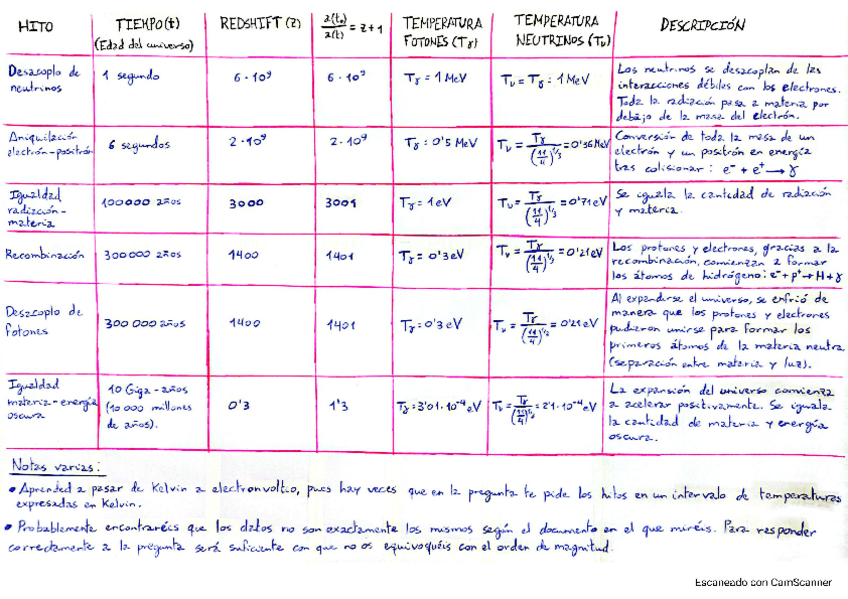 HITO TIEMPO(t) REDSHIFT (Z) a(t₀)/a(t) = z+1 TEMPERATURA TEMPERATURA DESCRIPCIÓN
(Edad del universo) FOTONES (Tγ) NEUTRINOS (Tν)
Desacoplo de neutrinos
1 segundo
6·10⁹
6·10⁹
Tγ = 1 MeV
Tν = Tγ = 1 MeV
Los neutrinos se desacoplan de las
interacciones débiles con los electrones.
Toda la radiación pasa a materia por
debajo de la masa del electrón.
Aniquilación
electrón-positrón
6 segundos
2·10⁹
2·10⁹
Tγ = 0'5 MeV
Tν = Tγ/(11/4)^1/3 = 0'36 MeV
Conversión de toda la masa de un
electrón y un positrón en energía
tras colisionar: e⁻ + e⁺ → γ
Igualdad
radiación-
materia
100000 años
3000
3001
Tγ = 1 eV
Tν = Tγ/(11/4)^1/3 = 0'71 eV
Se iguala la cantidad de radiación
y materia.
Recombinación
300000 años
1400
1401
Tγ = 0'3 eV
Tν = Tγ/(11/4)^1/3 = 0'21 eV
Los protones y electrones, gracias a la
recombinación, comienzan a formar
los átomos de hidrógeno: e⁻+p⁺→H+γ
Desacoplo de
fotones
300 000 años
1400
1401
Tγ = 0'3 eV
Tν = Tγ/(11/4)^1/2 = 0'21 eV
Al expandirse el universo, se enfrió de
manera que los protones y electrones
pudieron unirse para formar los
primeros átomos de la materia neutra
(separación entre materia y luz).
Igualdad
materia-energía
oscura
10 Giga-años
(10 000 millones
de años).
0'3
1'3
Tγ = 3'01·10⁻⁴ eV
Tν = Tγ/(11/4)^1/3 = 2'1·10⁻⁴ eV
La expansión del universo comienza
a acelerar positivamente. Se iguala
la cantidad de materia y energía
oscura.
Notas varias:
• Aprended a pasar de Kelvin a electronvoltio, pues hay veces que en la pregunta te pide los hitos en un intervalo de temperaturas
expresadas en Kelvin.
• Probablemente encontraréis que los datos no son exactamente los mismos según el documento en el que miréis. Para responder
correctamente a la pregunta será suficiente con que no os equivoquéis con el orden de magnitud.
Escaneado con CamScanner